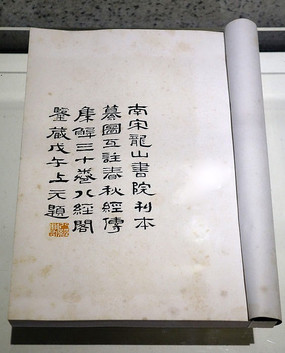 南宋龍山書院刊本
纂圖互註春秋經傳
集解三十卷八經閣
鑒藏戊午上元題